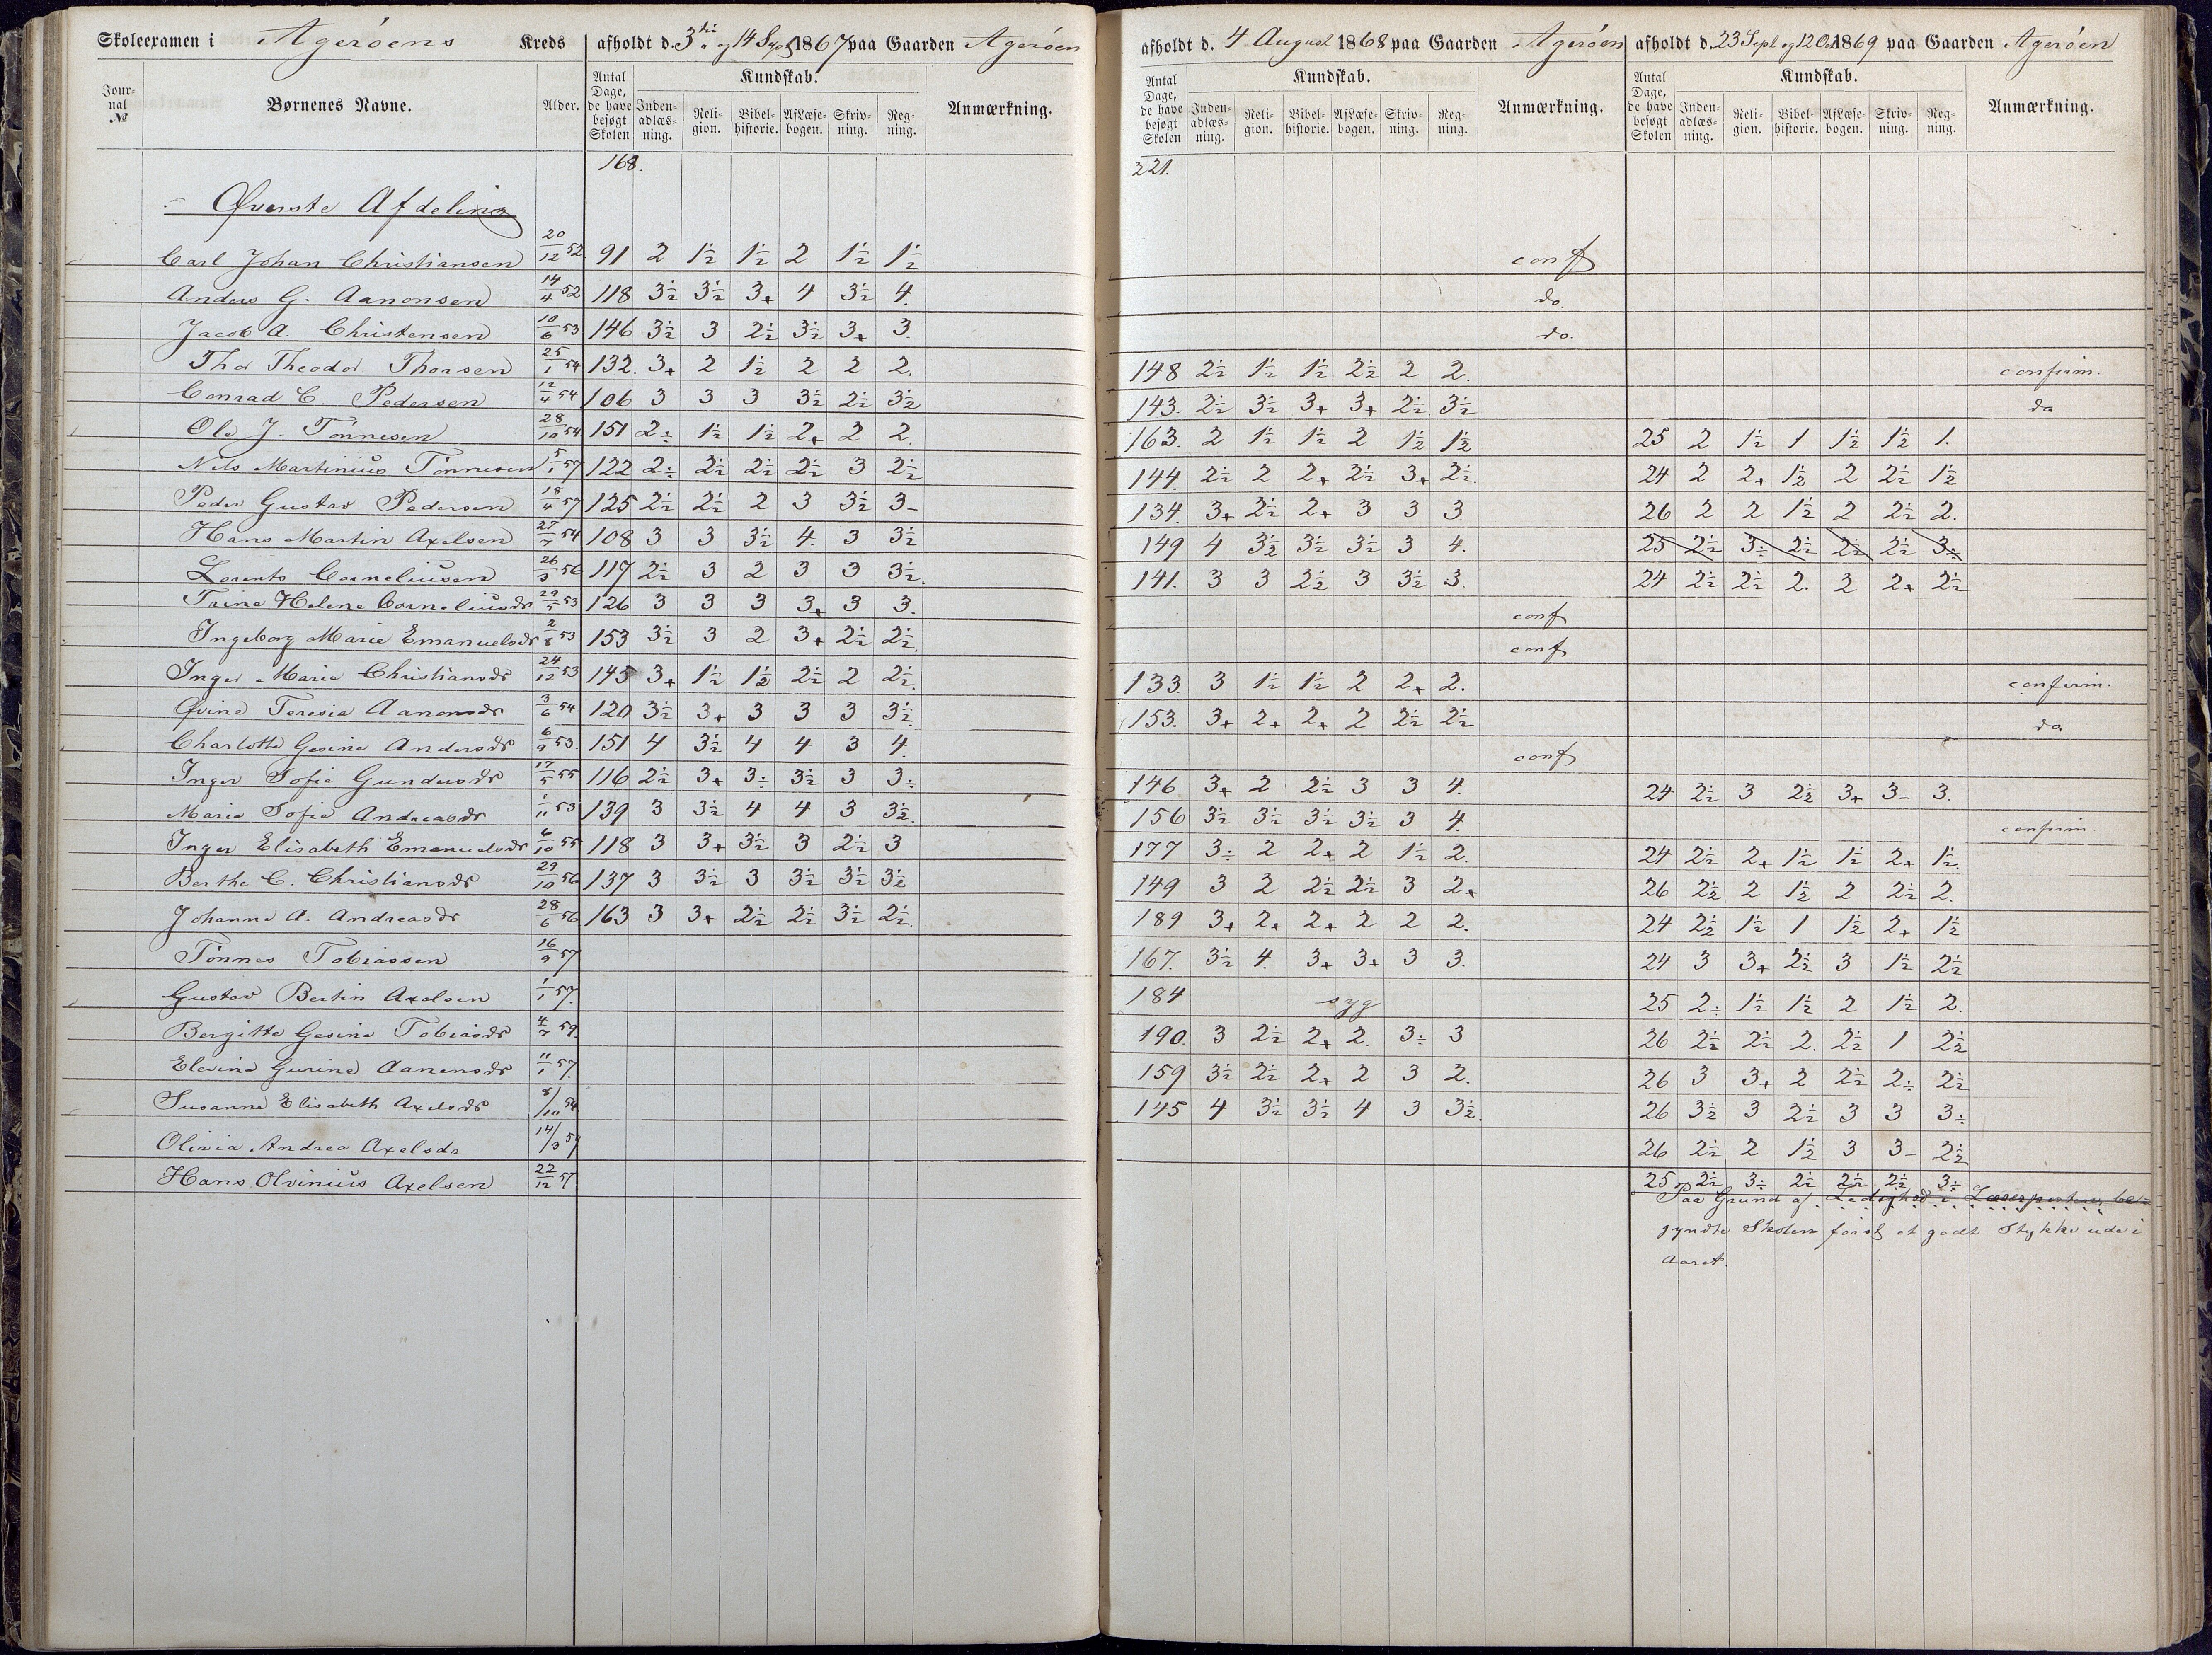 Skoleexamen i Ageröens Kreds afholdt d. 3 og 14 1867 paa Gaarden Ageröen
Jour-nal № Børnenes Navne. Alder. Antal Dage, de have besøgt Skolen Kundskab. Inden-adlæs-ning. Reli-gion. Bibel-historie. Af Læse-bogen. Skriv-ning. Reg-ning. Anmærkning.
168.
Øverste Afdeling
Carl Johan Christiansen 20/12 52 91 2 1½ 1½ 2 1½ 1½
Anders G. Aanonsen 14/4 52 118 3½ 3½ 3+ 4 3½ 4.
Jacob A. Christensen 10/6 53 146 3½ 3 2½ 3½ 3+ 3.
Thor Theodor Thorsen 25/1 54 132. 3+ 2 1½ 2 2 2.
Conrad C. Pedersen 12/4 54 106 3 3 3 3½ 2½ 3½
Ole J. Tönnesen 28/10 54 151 2÷ 1½ 1½ 2+ 2 2.
Nils Martinius Tönnesen 5/1 57 122 2÷ 2½ 2½ 2½ 3 2½
Peder Gustav Pedersen 18/4 57 125 2½ 2½ 2 3 3½ 3-
Hans Martin Axelsen 27/7 54 108 3 3 3½ 4. 3 3½
Lorents Corneliusen 26/3 56 117 2½ 3 2 3 3 3½.
Trine Helene Corneliusdr 29/5 53 126 3 3 3 3+ 3 3.
Ingeborg Marie Emanuelsdr 2/8 53 153 3½ 3 2 3+ 2½ 2½.
Inger Marie Christiansdr 24/12 53 145 3+ 1½ 1½ 2½ 2 2½.
Øvine Teresia Aanonsdr 3/6 54 120 3½ 3+ 3 3 3 3½.
Charlotte Gesine Andersdr 6/9 53. 151 4 3½ 4 4 3 4.
Inger Sofie Gundersdr 17/5 55 116 2½ 3+ 3÷ 3½ 3 3÷
Marie Sofie Andreasdr 1/11 53 139 3 3½ 4 4 3 3½.
Inger Elisabeth Emanuelsdr 6/10 55 118 3 3+ 3½ 3 2½ 3
Berthe C. Christiansdr 29/10 56 137 3 3½ 3 3½ 3½ 3½
Johanne A. Andreasdr 28/6 56 163 3 3+ 2½ 2½ 3½ 2½.
Tönnes Tobiassen 16/9 57
Gustav Bertin Axelsen 1/1 57.
Bergitte Gesine Tobiasdr 4/7 59.
Elevine Gurine Aanonsdr 11/1 57.
Susanne Elisabeth Axelsdr 8/10 54
Olivia Andrea Axelsdr 14/3 57
Hans Olvinius Axelsen 22/12 57
afholdt d. 4 August 1868 paa Gaarden Ageröen
Antal Dage, de have besøgt Skolen Kundskab. Inden-adlæs-ning. Reli-gion. Bibel-historie. Af Læse-bogen. Skriv-ning. Reg-ning. Anmærkning.
221.
conf
do.
do.
148 2½ 1½ 1½ 2½ 2 2.
143. 2½ 3½ 3+ 3+ 2½ 3½
163. 2 1½ 1½ 2 1½ 1½
144. 2½ 2 2+ 2½ 3+ 2½.
134. 3+ 2½ 2+ 3 3 3.
149 4 3½ 3½ 3½ 3 4.
141. 3 3 2½ 3 3½ 3.
conf
conf
133. 3 1½ 1½ 2 2+ 2.
153. 3+ 2+ 2+ 2 2½ 2½
conf
146 3+ 2 2½ 3 3 4.
156 3½ 3½ 3½ 3½ 3 4.
177 3÷ 2 2+ 2 1½ 2.
149 3 2 2½ 2½ 3 2+
189 3+ 2+ 2+ 2 2 2.
167. 3½ 4. 3+ 3+ 3 3.
184 syg
190. 3 2½ 2+ 2. 3÷ 3
159 3½ 2½ 2+ 2 3 2.
145 4 3½ 3½ 4 3 3½.
afholdt d. 23 Sept og 12 Oct 1869 paa Gaarden Ageröen
Antal Dage, de have besøgt Skolen Kundskab. Inden-adlæs-ning. Reli-gion. Bibel-historie. Af Læse-bogen. Skriv-ning. Reg-ning. Anmærkning.
confirm.
do
25 2 1½ 1 1½ 1½ 1.
24 2 2+ 1½ 2 2½ 1½
26 2 2 1½ 2 2½ 2.
25 2½ 3÷ 2½ 2½ 2½ 3÷
24 2½ 2½ 2. 2 2+ 2½
confirm.
do
24 2½ 3 2½ 3+ 3- 3.
confirm
24 2½ 2+ 1½ 1½ 2+ 1½.
26 2½ 2 1½ 2 2½ 2.
24 2½ 1½ 1 1½ 2+ 1½
24 3 3+ 2½ 3 1½ 2½
25 2÷ 1½ 1½ 2 1½ 2.
26 2½ 2½ 2. 2½ 1 2½
26 3 3+ 2 2½ 2÷ 2½
26 3½ 3 2½ 3 3 3÷
26 2½ 2 1½ 3 3- 2½
25 2½ 3÷ 2½ 2½ 2½ 3÷
Paa Grund af Ledighed i Lærerposten be=
gyndte Skolen först et godt Stykke ude i
Aaret.